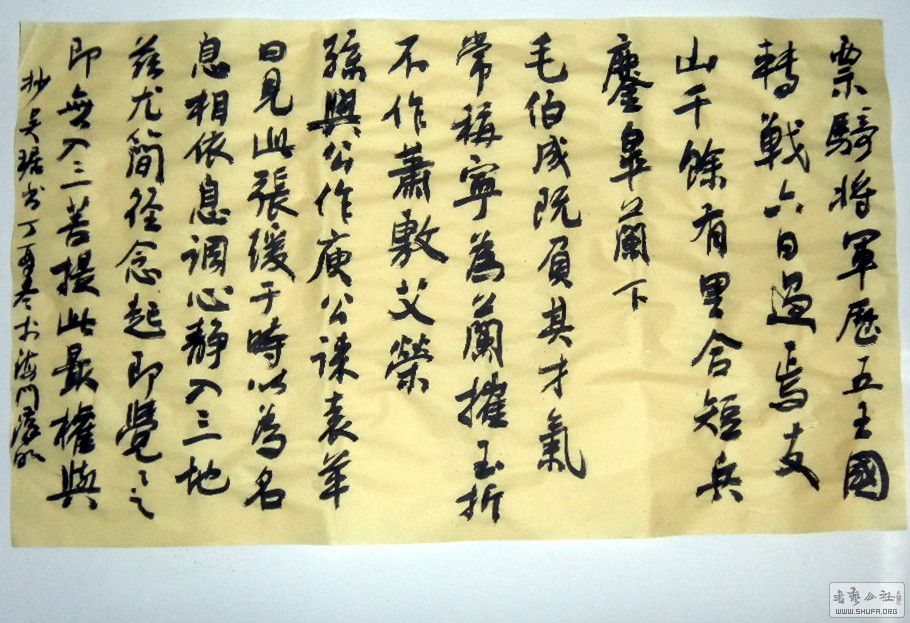 票騎将軍歷五王國
轉戦六日過焉支
山千餘有里合短兵
鏖皋蘭下
毛伯成既負其才氣
常稱寧為蘭摧玉折
不作蕭敷艾榮
孫興公作庾公誄袁羊
曰見此張緩于時以為名
息相依息調心静入三地
兹尤簡径念起即覺覺之
即無入三菩提此最權與
抄吴琚书丁酉冬於海門
書藝公社
WWW.SHUFA.ORG